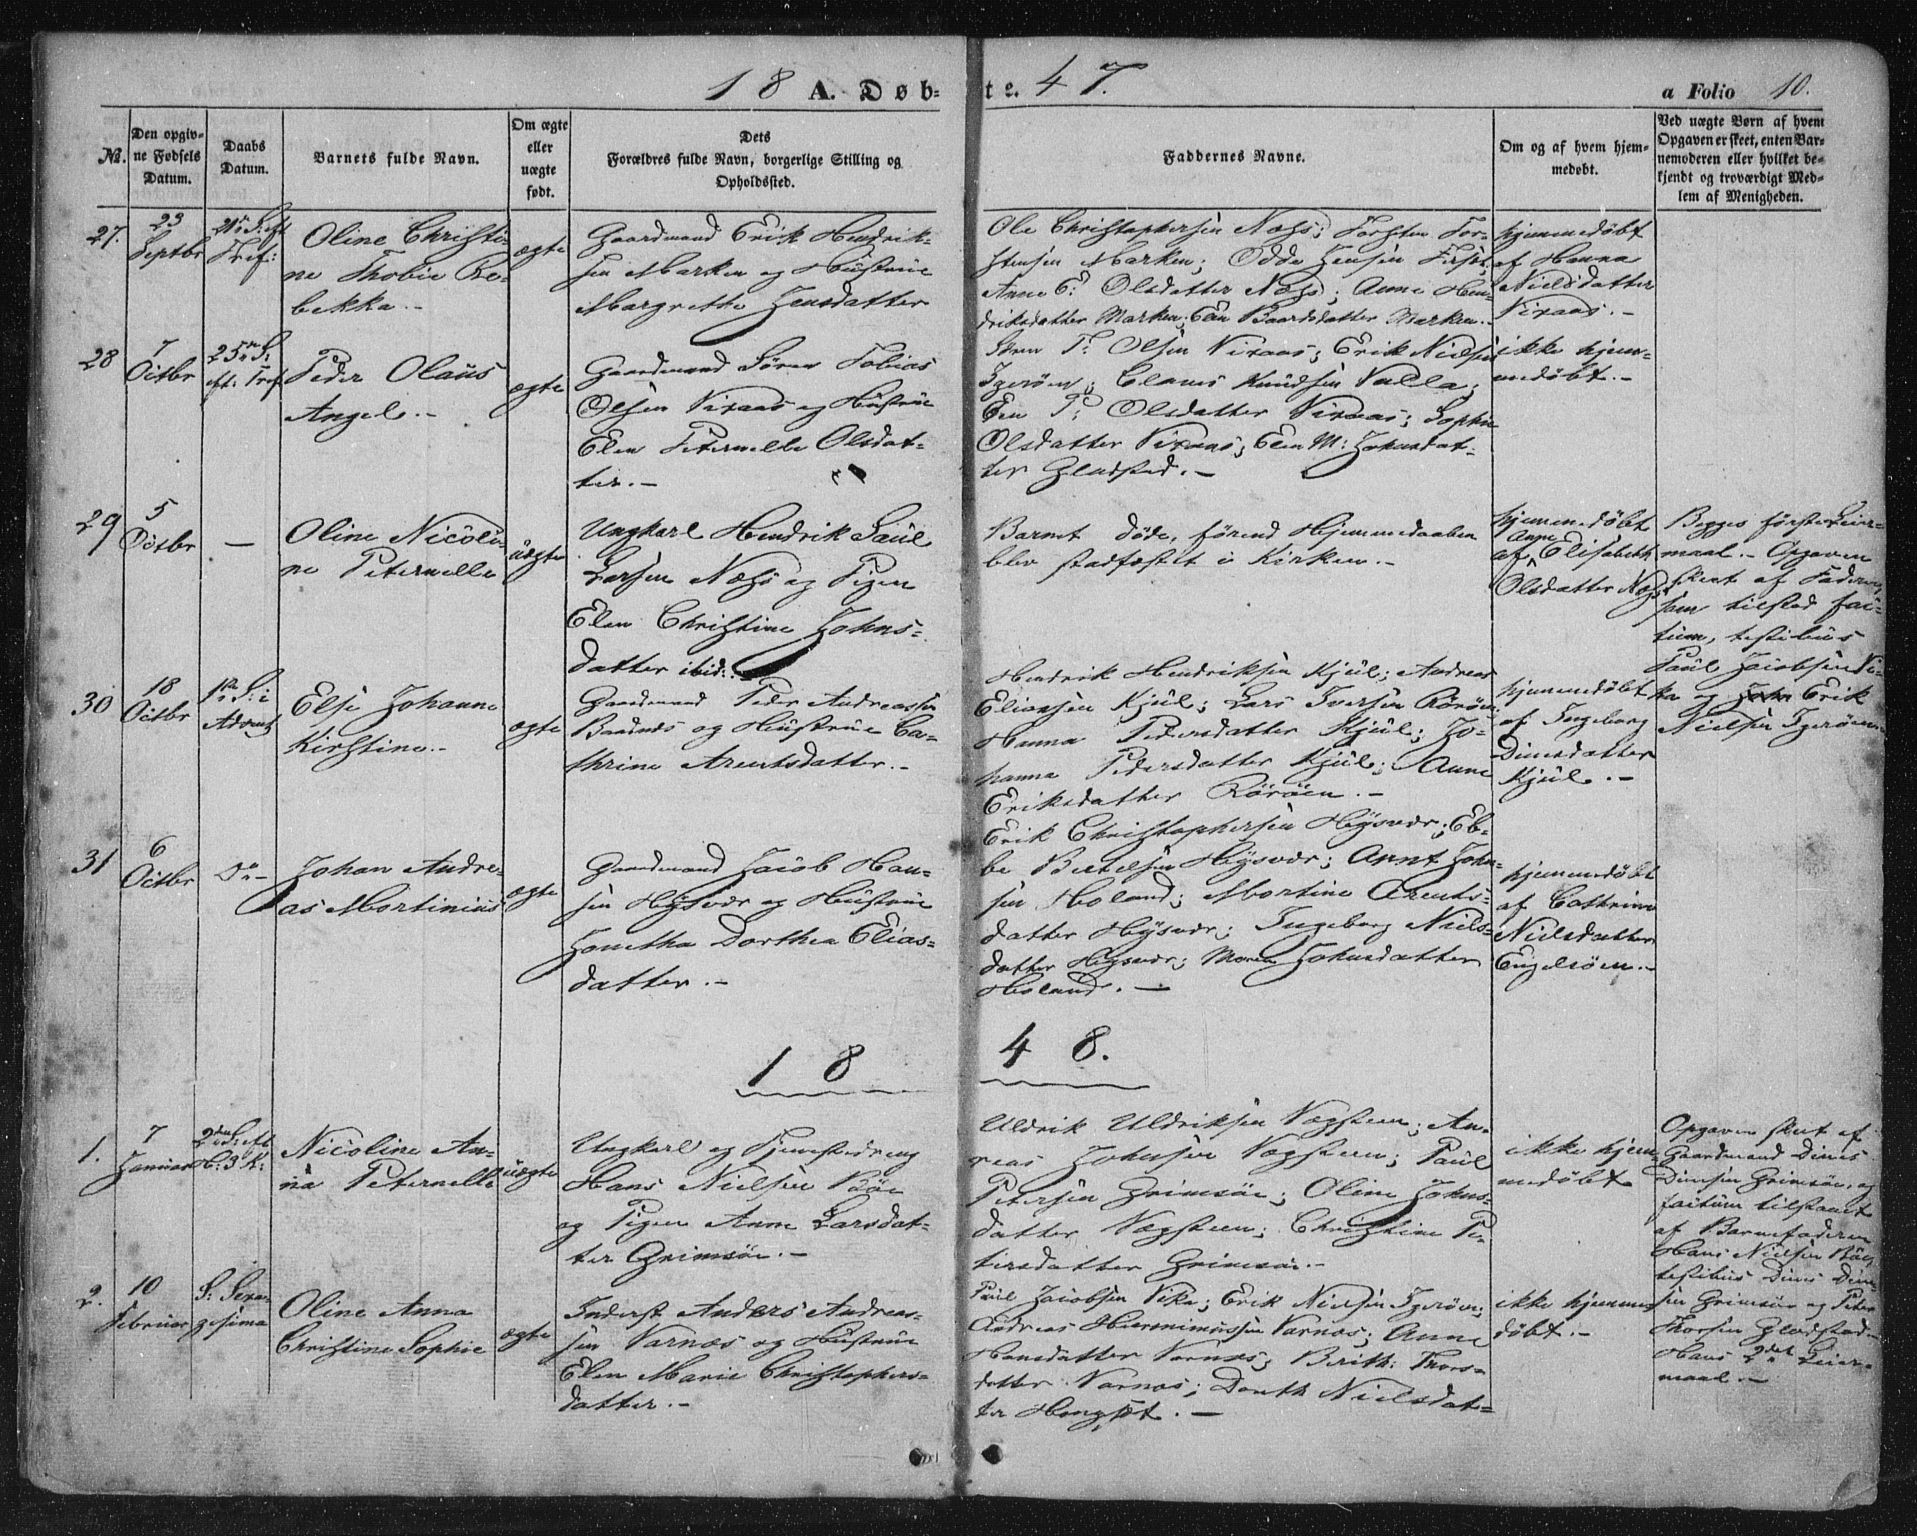 18 A. Døb- te. 47.
a Folio 10.
No.
Den opgiv-
ne Fødsels
Datum.
Daabs
Datum.
Barnets fulde Navn.
Om ægte
eller
uægte
født.
Dets
Forældres fulde Navn, borgerlige Stilling og
Opholdssted.
Faddernes Navne.
Om og af hvem hjem-
medøbt.
Ved uægte Børn af hvem
Opgaven er skeet, enten Bar-
nemoderen eller hvilket be-
kjendt og troværdigt Med-
lem af Menigheden.
27.
23
Septbr
21n S: eft
Trif:
Oline Christi-
ne Thobie Re-
bekka.-
ægte
Gaardmand Erik Hendrik-
sen Marken og Hüstrüe
Margrethe Jensdatter
Ole Christophersen Næss; Torsten Tor-
stensen Marken; Odde Jensen
Anne E: Olsdatter Næss; Anne Hen-
driksdatter Marken; Elen Baardsdatter Marken.-
hjemmedøbt
af Hanna
Nielsdatter
Vixaas.-
28
7
Octbr
25n S:
eft: Tref
Peder Olaüs
Angel.-
ægte
Gaardmand Sören Tobias
Olsen Vixaas og Hüstrüe
Elen Peternelle Olsdat-
ter.-
T: Olsen Vixaas; Erik Nielsen
Igerøen; Claus Knudsen Valla;
P: Olsdatter Vixaas; Sophie
Olsdatter Vixaas; Elen M: Johnsdat-
ter Gladstad.-
ikke hjem-
medøbt.-
29
5
Octbr
-
Oline Nicoli-
ne Peternelle
üægte
Ungkarl Hendrik Paül
Larsen Næss og Pigen
Elen Christine Johns-
datter ibid:
Barnet døde, førend Hjemmedaaben
blev stadfæstet i Kirken.-
hjemmedøbt
Anne
af Elisabeth
Olsdatter Næss
Begges første Leier-
maal.- Opgaven
skeet af Faderen,
som tilstod fac-
tum, testibüs
Paül Jacobsen Vi-
ka og John Erik
Nielsen Igerøen.-
30
18
Octbr
1ste S: i
Advent
Else Johanne
Kirstine.-
ægte
Gaardmand Peder Andreassen
Baadnes og Hüstrüe Ca-
thrine Arentsdatter.-
Hendrik Hendriksen Kjül; Andreas
Eliassen Kjül; Lars Iversen Rörøen
Hanna Pedersdatter Kjül; Jo-
hanna Pedersdatter Kjül; Anne
Eriksdatter Rörøen.-
hjemmedøbt
af Ingeborg
Dinesdatter
Kjül.-
31
6
Octbr
Do-
Johan Andre-
as Mortinius
ægte
Gaardmand Jacob Han-
sen Hysvær og Hüstrüe
Jonetha Dorthea Elias-
datter.-
Erik Christophersen Hysvær; Eb-
be Bertelsen Hysvær; Arnt John-
sen Holand; Mortine Arents-
datter Hysvær; Ingeborg Niels-
datter Hysvær; Maren Johnsdatter
Holand.-
hjemmedøbt
af Cathrine
Nielsdatter
Engelsøen.-
18 48.
1.
7
Januar
2den S: eft
H: 3 K:
Nicoline An-
na Peternelle
üægte
Ungkarl og Tjenestedreng
Hans Nielsen Bøe
og Pigen Anne Larsdat-
ter Grimsøe.-
Uldrik Uldriksen Vægsteen; An-
reas Johnsen Vægsteen; Paül
Petersen Grimsøe; Oline Johns-
datter Vægsteen; Christine Pe-
tersdatter Grimsøe.-
ikke hjem-
medøbt
Opgaven skeet af
Gaardmand Dines
Dinesen Grimsøe, og
factum tilstaaet
af Barnefaderen
Hans Nielsen Bøe,
testibus Dines Dine-
sen Grimsøe og Peter
Thorsen Gladstad
Hans 2det Leier-
maal.-
2.
10
Februar
S: Sexa-
gesima
Oline Anna
Christine Sophie
ægte
Inderst Anders Andreas-
sen Varnæs og Hüstrüe
Elen Marie Christophers-
datter.-
Paül Jacobsen Vika; Erik Nielsen Igerøen;
Andreas Hieronimussen Varnæs; Anne
Hansdatter Varnæs; Berith: Thors-
datter Varnæs; Dorth Nielsdat-
ter Hongset.-
ikke hjemme
døbt.-